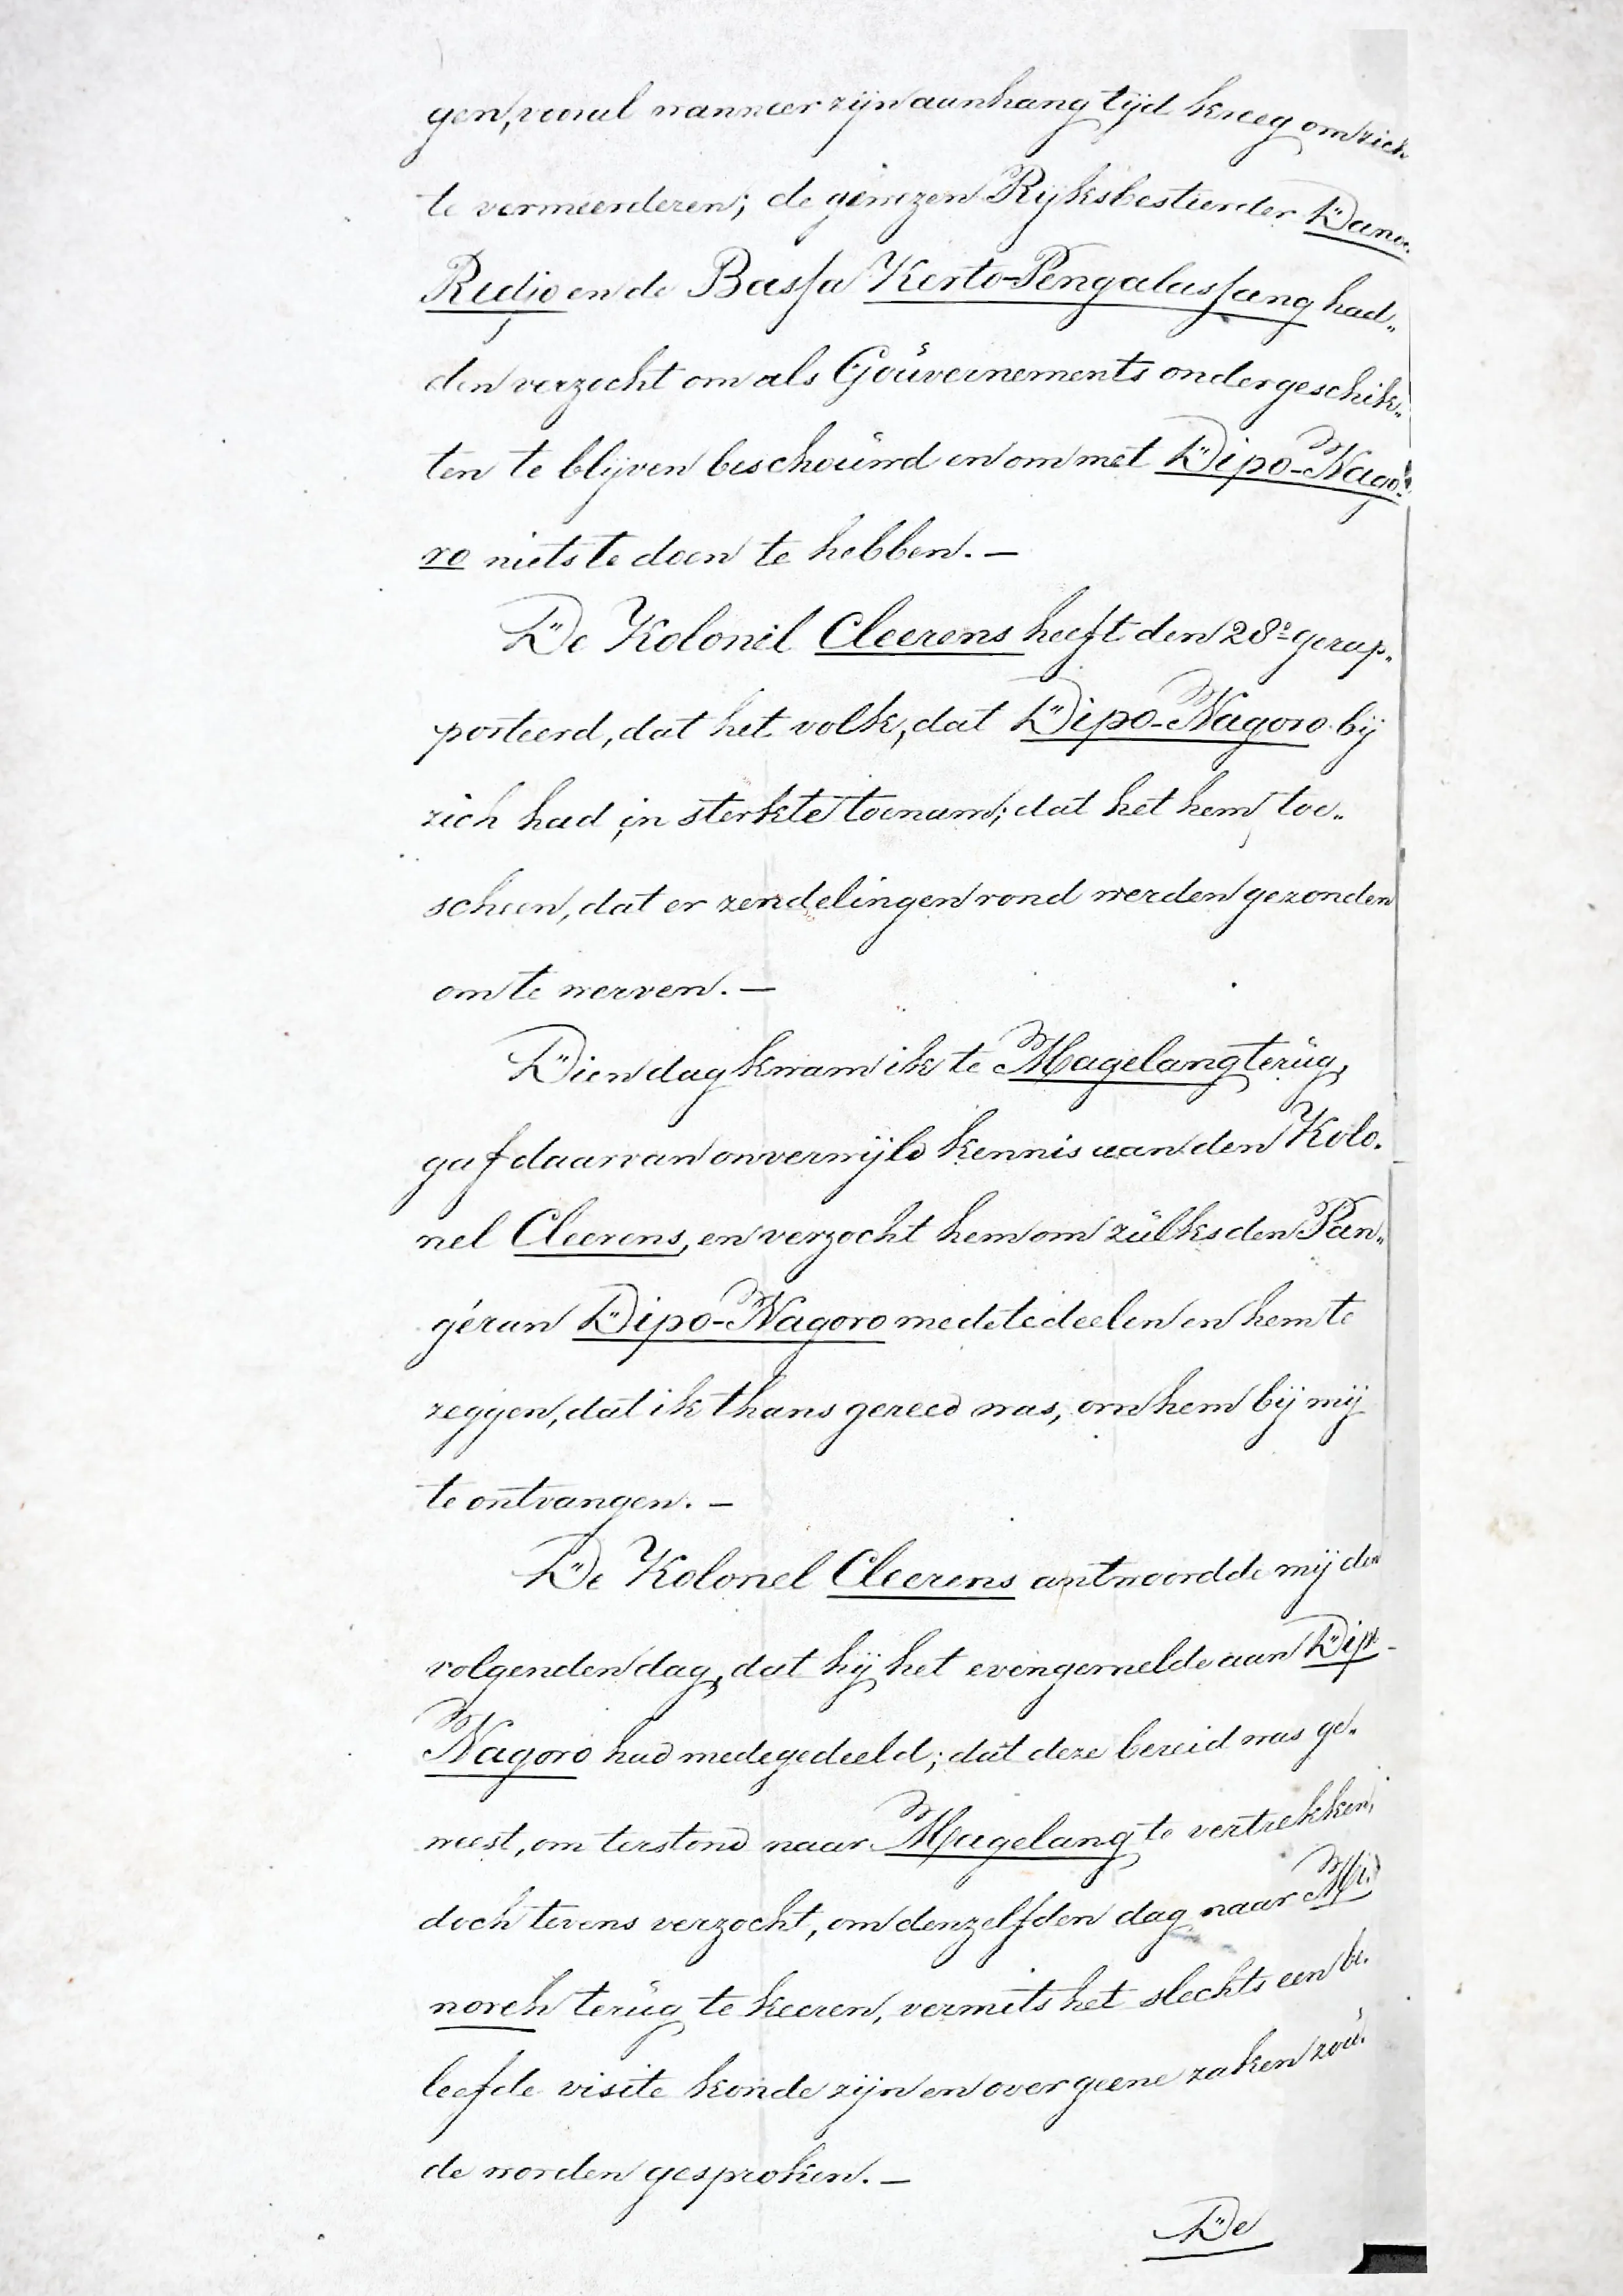 gen, vooral wanneer zijn aanhang tijd kreeg om zich
te vermeerderen; de gewezen Rijksbestierder Dano„
Redjo en de Bassa Kerto-Pengalassang had„
den verzocht om als Gouvernements ondergeschik„
ten te blijven beschouwd en om met Dipo-Nago„
ro niets te doen te hebben. —
De Kolonel Cleerens heeft den 28e gerap„
porteerd, dat het volk, dat Dipo-Nagoro bij
zich had in sterkte toenam; dat het hem toe„
scheen, dat er zendelingen rond werden gezonden
om te werven. —
Dien dag kwam ik te Magelang terug,
gaf daarvan onverwijld kennis aan den Kolo„
nel Cleerens, en verzocht hem om zulks den Pan„
géran Dipo-Nagoro mede te deelen en hem te
zeggen, dat ik thans gereed was, om hem bij mij
te ontvangen. —
De Kolonel Cleerens antwoordde mij den
volgenden dag, dat hij het evengemelde aan Dipo-
Nagoro had medegedeeld; dat deze bereid was ge„
weest, om terstond naar Magelang te vertrekken,
doch tevens verzocht, om denzelfden dag naar Me„
noreh terug te keeren, vermits het slechts een be„
leefde visite konde zijn en over geene zaken zou„
de worden gesproken. —
De